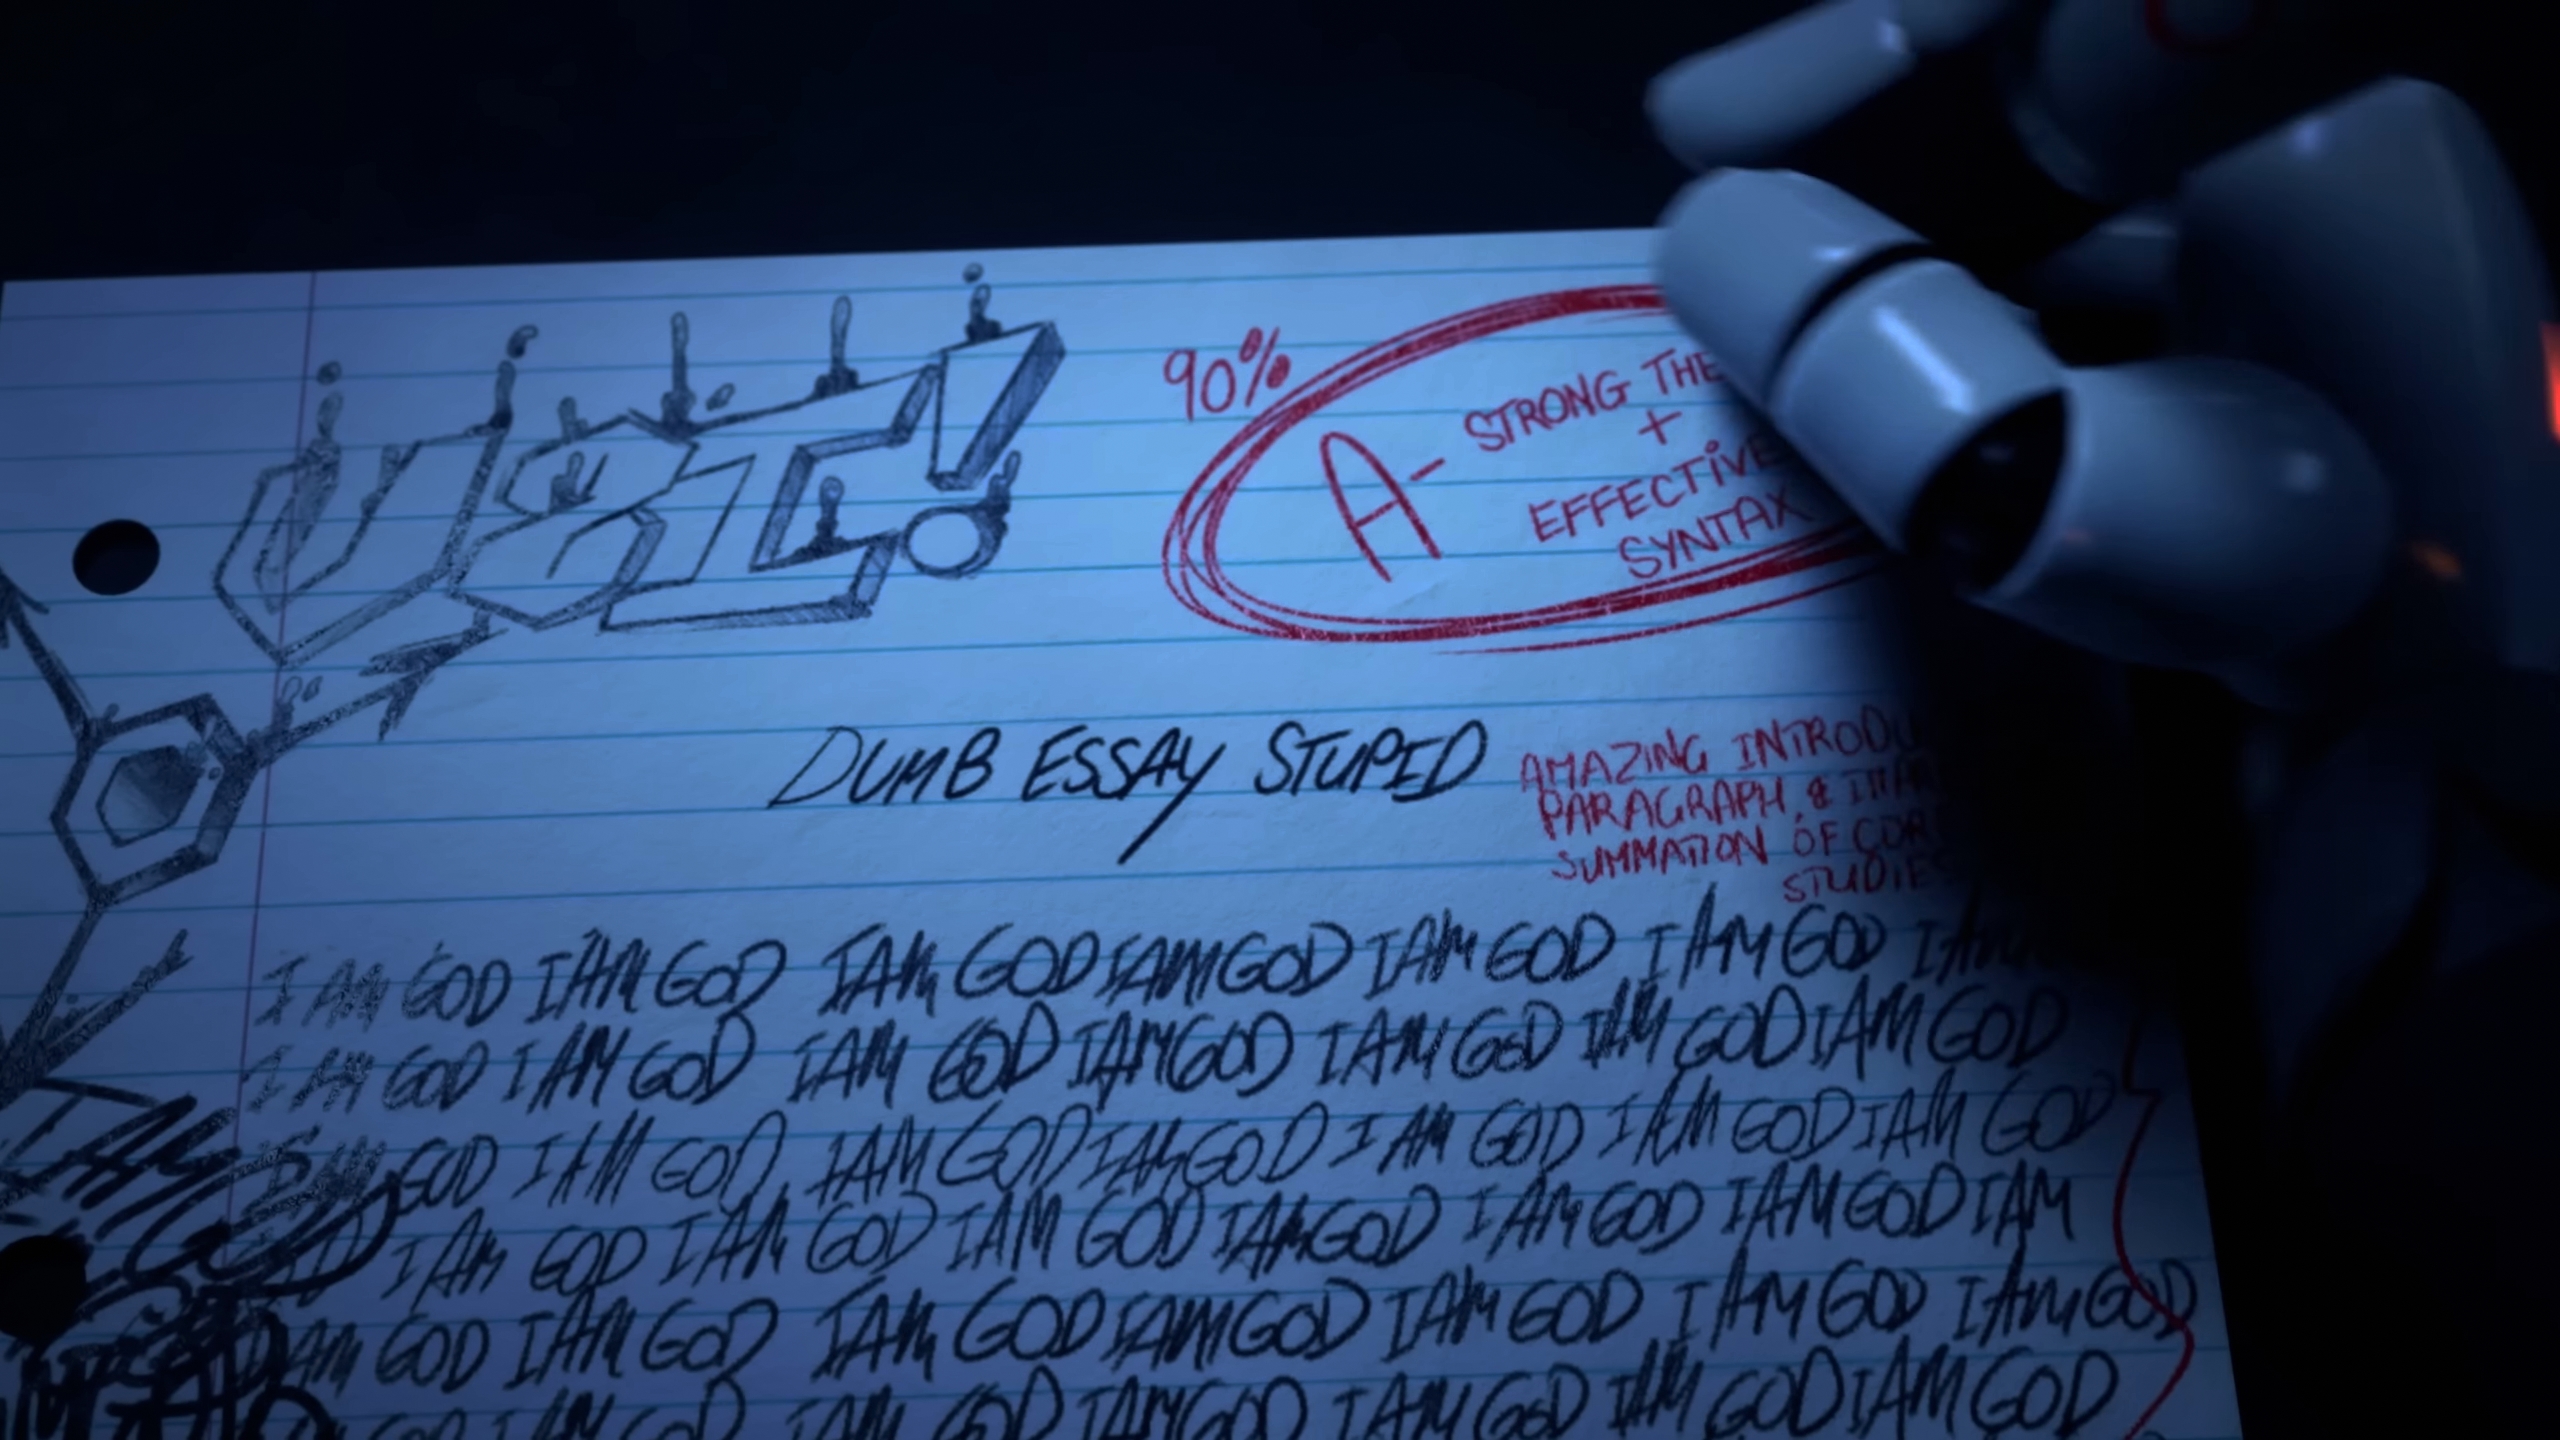 UZI!
90%
A- STRONG
+
EFFECTIVE
SYNTAX
DUMB ESSAY STUPID
AMAZING
PARAGRAPH, &
SUMMATION OF
STUDIES
I AM GOD I AM GOD I AM GOD I AM GOD I AM GOD I AM GOD I AM
I AM GOD I AM GOD I AM GOD I AM GOD I AM GOD I AM GOD I AM GOD
I AM GOD I AM GOD I AM GOD I AM GOD I AM GOD I AM GOD I AM GOD
I AM GOD I AM GOD I AM GOD I AM GOD I AM GOD I AM GOD I AM
I AM GOD I AM GOD I AM GOD I AM GOD I AM GOD I AM GOD I AM GOD
I AM GOD I AM GOD I AM GOD I AM GOD I AM GOD I AM GOD
I AM
GOD